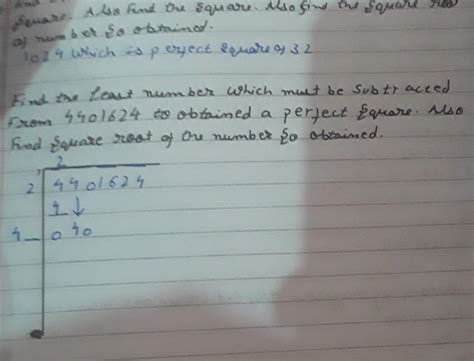 Square. Also find the square. Also find the square root
of number so obtained.
1024 which is perfect square of 32
Find the least number which must be subtracted
From 4401624 to obtained a perfect square. Also
Find square root of the number so obtained.
2
2 4401624
4 ↓
4_ 040